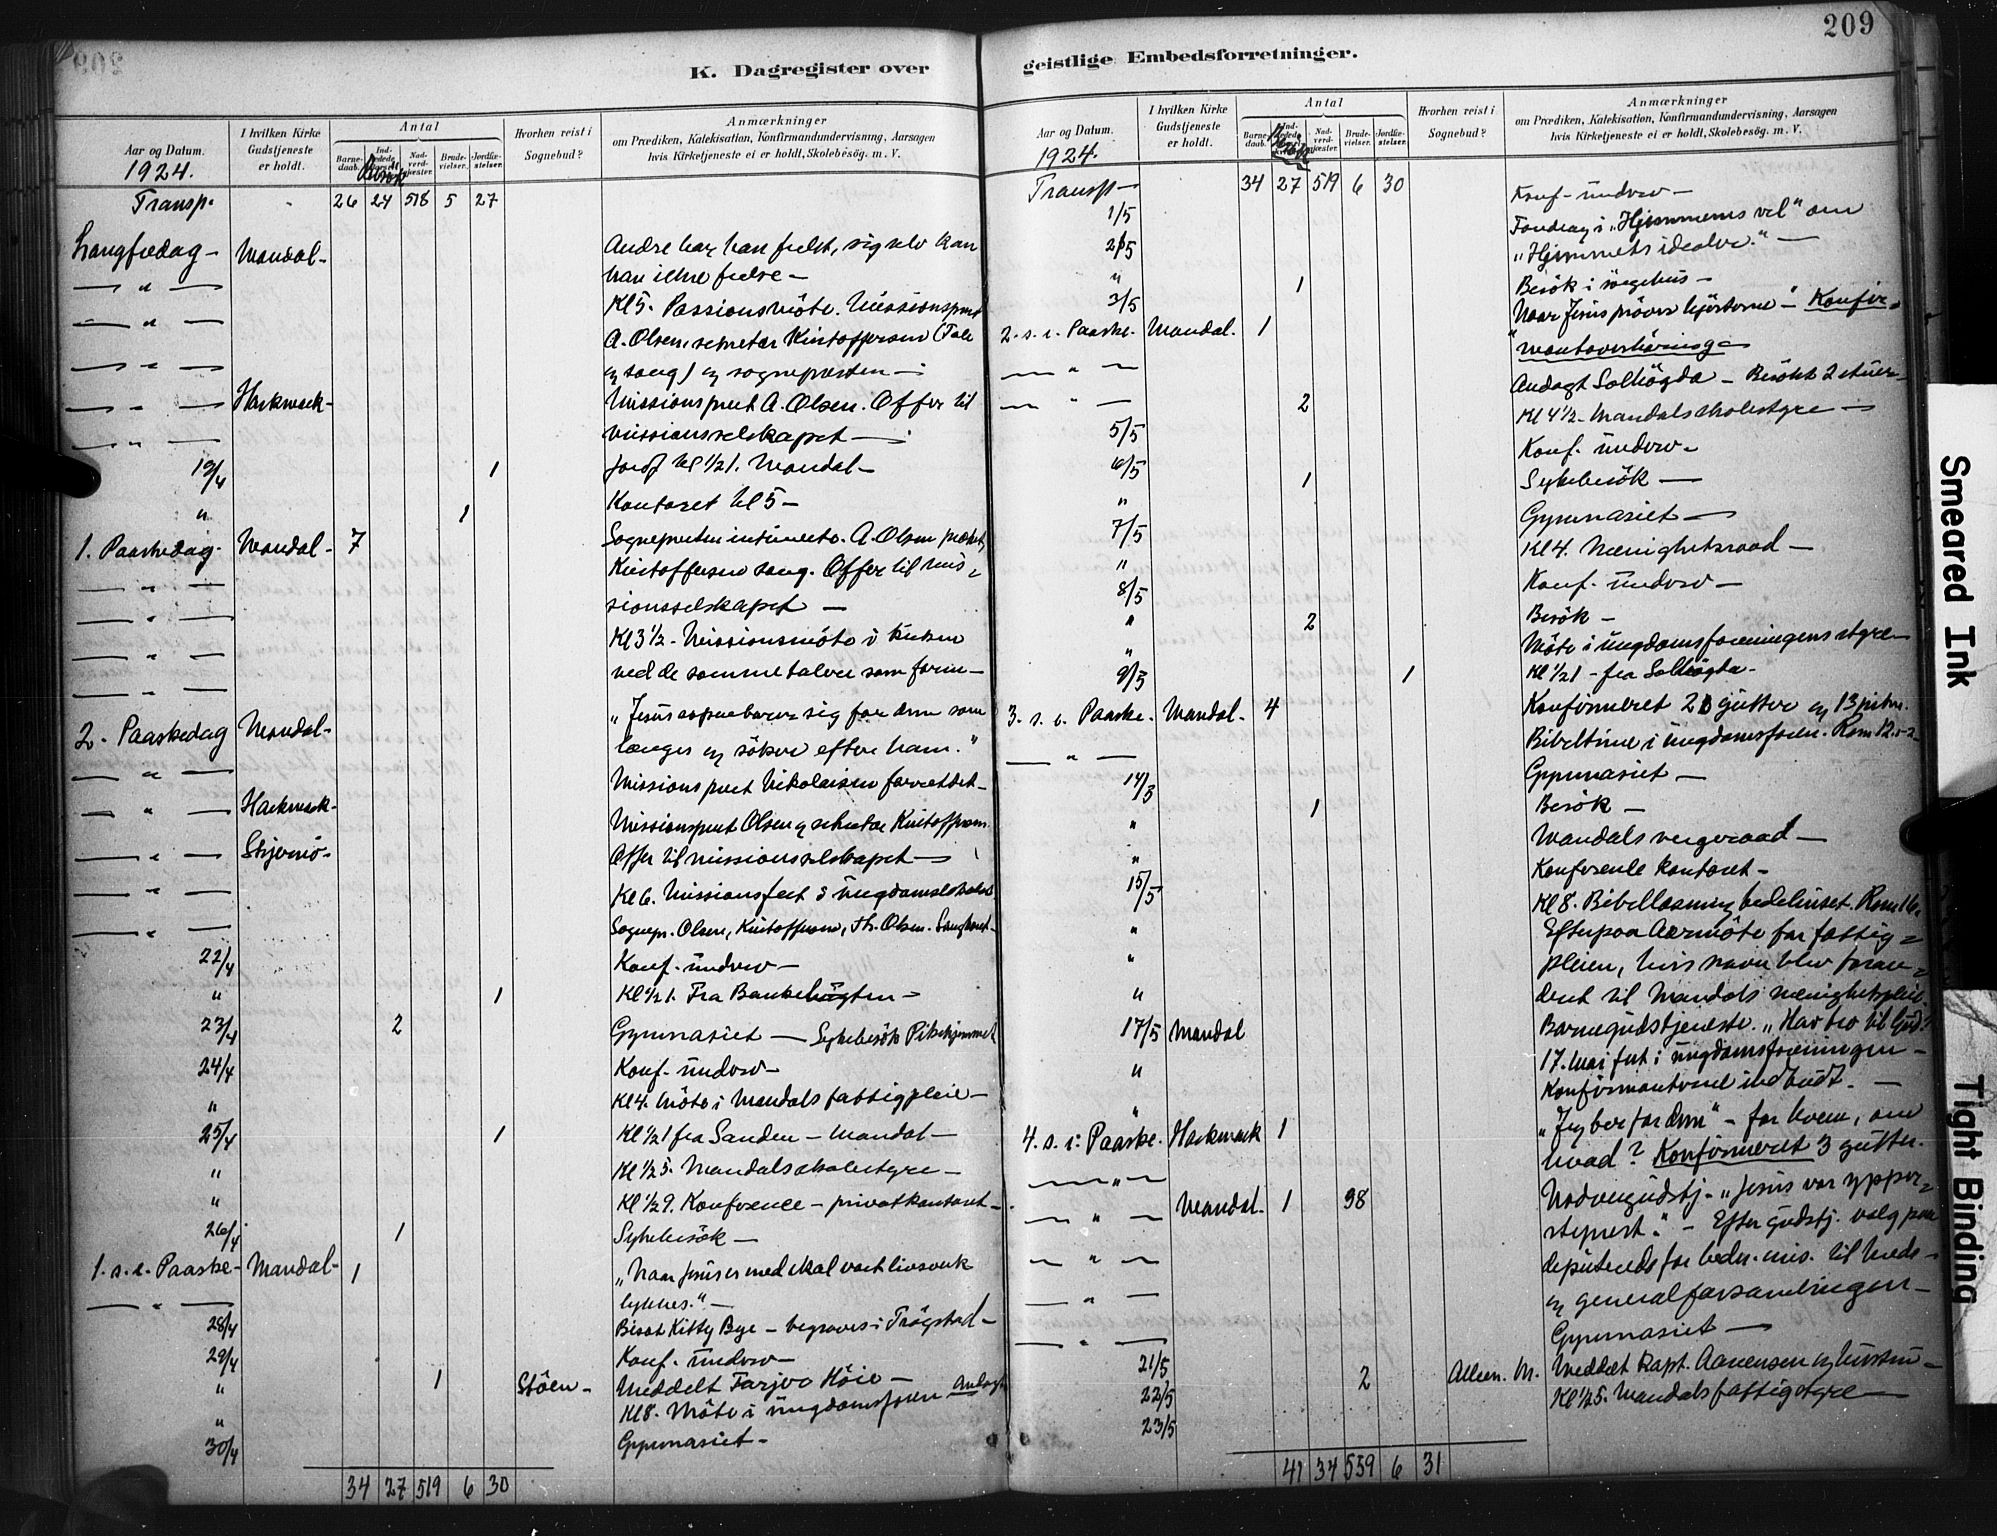 209
K. Dagregister over
geistlige Embedsforretninger.
Aar og Datum.
1924.
I hvilken Kirke Gudstjeneste er holdt.
Antal
Barnedaab.
Besök
Nadverdgjester.
Brudevielser.
Jordfæstelser.
Hvorhen reist i Sognebud?
Anmærkninger
om Prædiken, Katekisation, Konfirmandundervisning, Aarsagen
hvis Kirketjeneste ei er holdt, Skolebesög. m. V.
Transp. 26 24 518 5 27
Langfredag - Mandal - Andre har han frelst, sig selv kan
— " — han ikke frelse —
— " — Kl 5. Passionsmöte. Missionsprest
— " — A. Olsen, sekretær Kristoffersen (Tale
og sang) og sognepresten —
— " — Harkmark - Missionsprest A. Olsen. Offer til
— " — missionsselskapet —
19/4 1 Jordf kl 1/2 1. Mandal —
" 1 Kontoret kl 5 —
1. Paaskedag - Mandal - 7 Sognepresten intimerte. A. Olsen præket,
— " — Kristoffersen sang. Offer til mis-
— " — sionsselskapet —
— " — Kl 3 1/2 - Missionsmöte i kirken
— " — ved de samme talere som forrm —
2. Paaskedag Mandal - "Jesus aapenbarer sig for dem som
— " — længes og söker efter ham."
— " — Harkmark - Missionsprest Nikolaisen forrettet —
— " — Skjernö - Missionsprest Olsen og sekretær Kristoffersen.
Offer til missionsselskapet —
— " — Kl 6. Missionsfest i ungdomslokalet
— " — Sognepr. Olsen, Kristoffersen, Th. Olsen. Sangkoret —
22/4 Konf. underv —
" 1 Kl 1/2 1. Fra Bankehögten —
23/4 2 Gymnasiet — Sykebesök Pikehjemmet
24/4 Konf. underv —
" Kl 4. Möte i Mandals fattigpleie —
25/4 1 Kl 1/2 1 fra Sanden — Mandal —
" Kl 1/2 5. Mandals skolestyre —
" Kl 1/2 9. Konference — privatkontoret —
26/4 1 Sykebesök —
1. s. e. Paaske - Mandal - 1 "Naar Jesus er med skal vort livsverk
— " — lykkes." —
28/4 Bisat Kitty Bye — begraves i Trögstad —
29/4 Konf. underv —
" 1 Stöen - Meddelt Tarjer Höie —
" Kl 8. Möte i ungdomsforen Andagt
30/4 Gymnasiet —
34 27 519 6 30
Aar og Datum.
1924.
I hvilken Kirke Gudstjeneste er holdt.
Antal
Barnedaab.
Besök
Nadverdgjester.
Brudevielser.
Jordfæstelser.
Hvorhen reist i Sognebud?
Anmærkninger
om Prædiken, Katekisation, Konfirmandundervisning, Aarsagen
hvis Kirketjeneste ei er holdt, Skolebesög. m. V.
Transp — 34 27 519 6 30
1/5 Konf. underv —
2/5 Foredrag i "Hjemmenes vel" om
"Hjemmets idealer." —
" 1 Besök i sörgehus —
3/5
2. s. e. Paaske. Mandal. 1 "Naar Jesus pröver hjerterne" — Konfir-
mantoverhöring —
— " — Andagt Solhögda — Besökt 2 stuer —
— " — 2
5/5 Kl 4 1/2 - Mandals skolestyre —
6/5 Konf. underv —
" 1 Sykebesök —
7/5 Gymnasiet —
" Kl 4. Menighetsraad —
8/5 Konf. underv —
" 2 Besök —
" Möte i ungdomsforeningens styre —
9/5 1 Kl 1/2 1 — fra Solhögda —
3. s. e. Paaske. Mandal. 4 Konfirmeret 21 gutter og 13 piker.
— " — Bibeltime i ungdomsforen. Rom 12. 1-2
14/5 Gymnasiet —
" 1 Besök —
" Mandals vergeraad —
15/5 Konferense kontoret —
" Kl 8. Bibellæsning bedehuset. Rom 16.
" Efterpaa Aarsmöte for fattig-
pleien, hvis navn blev foran-
dret til Mandals menighetspleie.
17/5 Mandal Barnegudstjeneste. "Hav tro til Gud."
" 17. mai fest i ungdomsforeningen —
" Konfirmanterne indbudt. —
4. s. e. Paaske. Harkmark 1 "Jeg ber for dem" — for hvem, om
hvad? Konfirmeret 3 gutter.
— " — Mandal. 1 38 Nadvergudstj. "Jesus var ypper-
steprest." — Efter gudstj. valg paa
— " — deputerede for hedn. mis. til kreds —
— " — og generalforsamlingen —
21/5 Gymnasiet —
22/5 2 Alleen. M. Meddelt Kapt. Aanensen og hustru —
23/5 Kl 1/2 5. Mandals fattigstyre —
41 34 559 6 31
Smeared Ink
Tight Binding